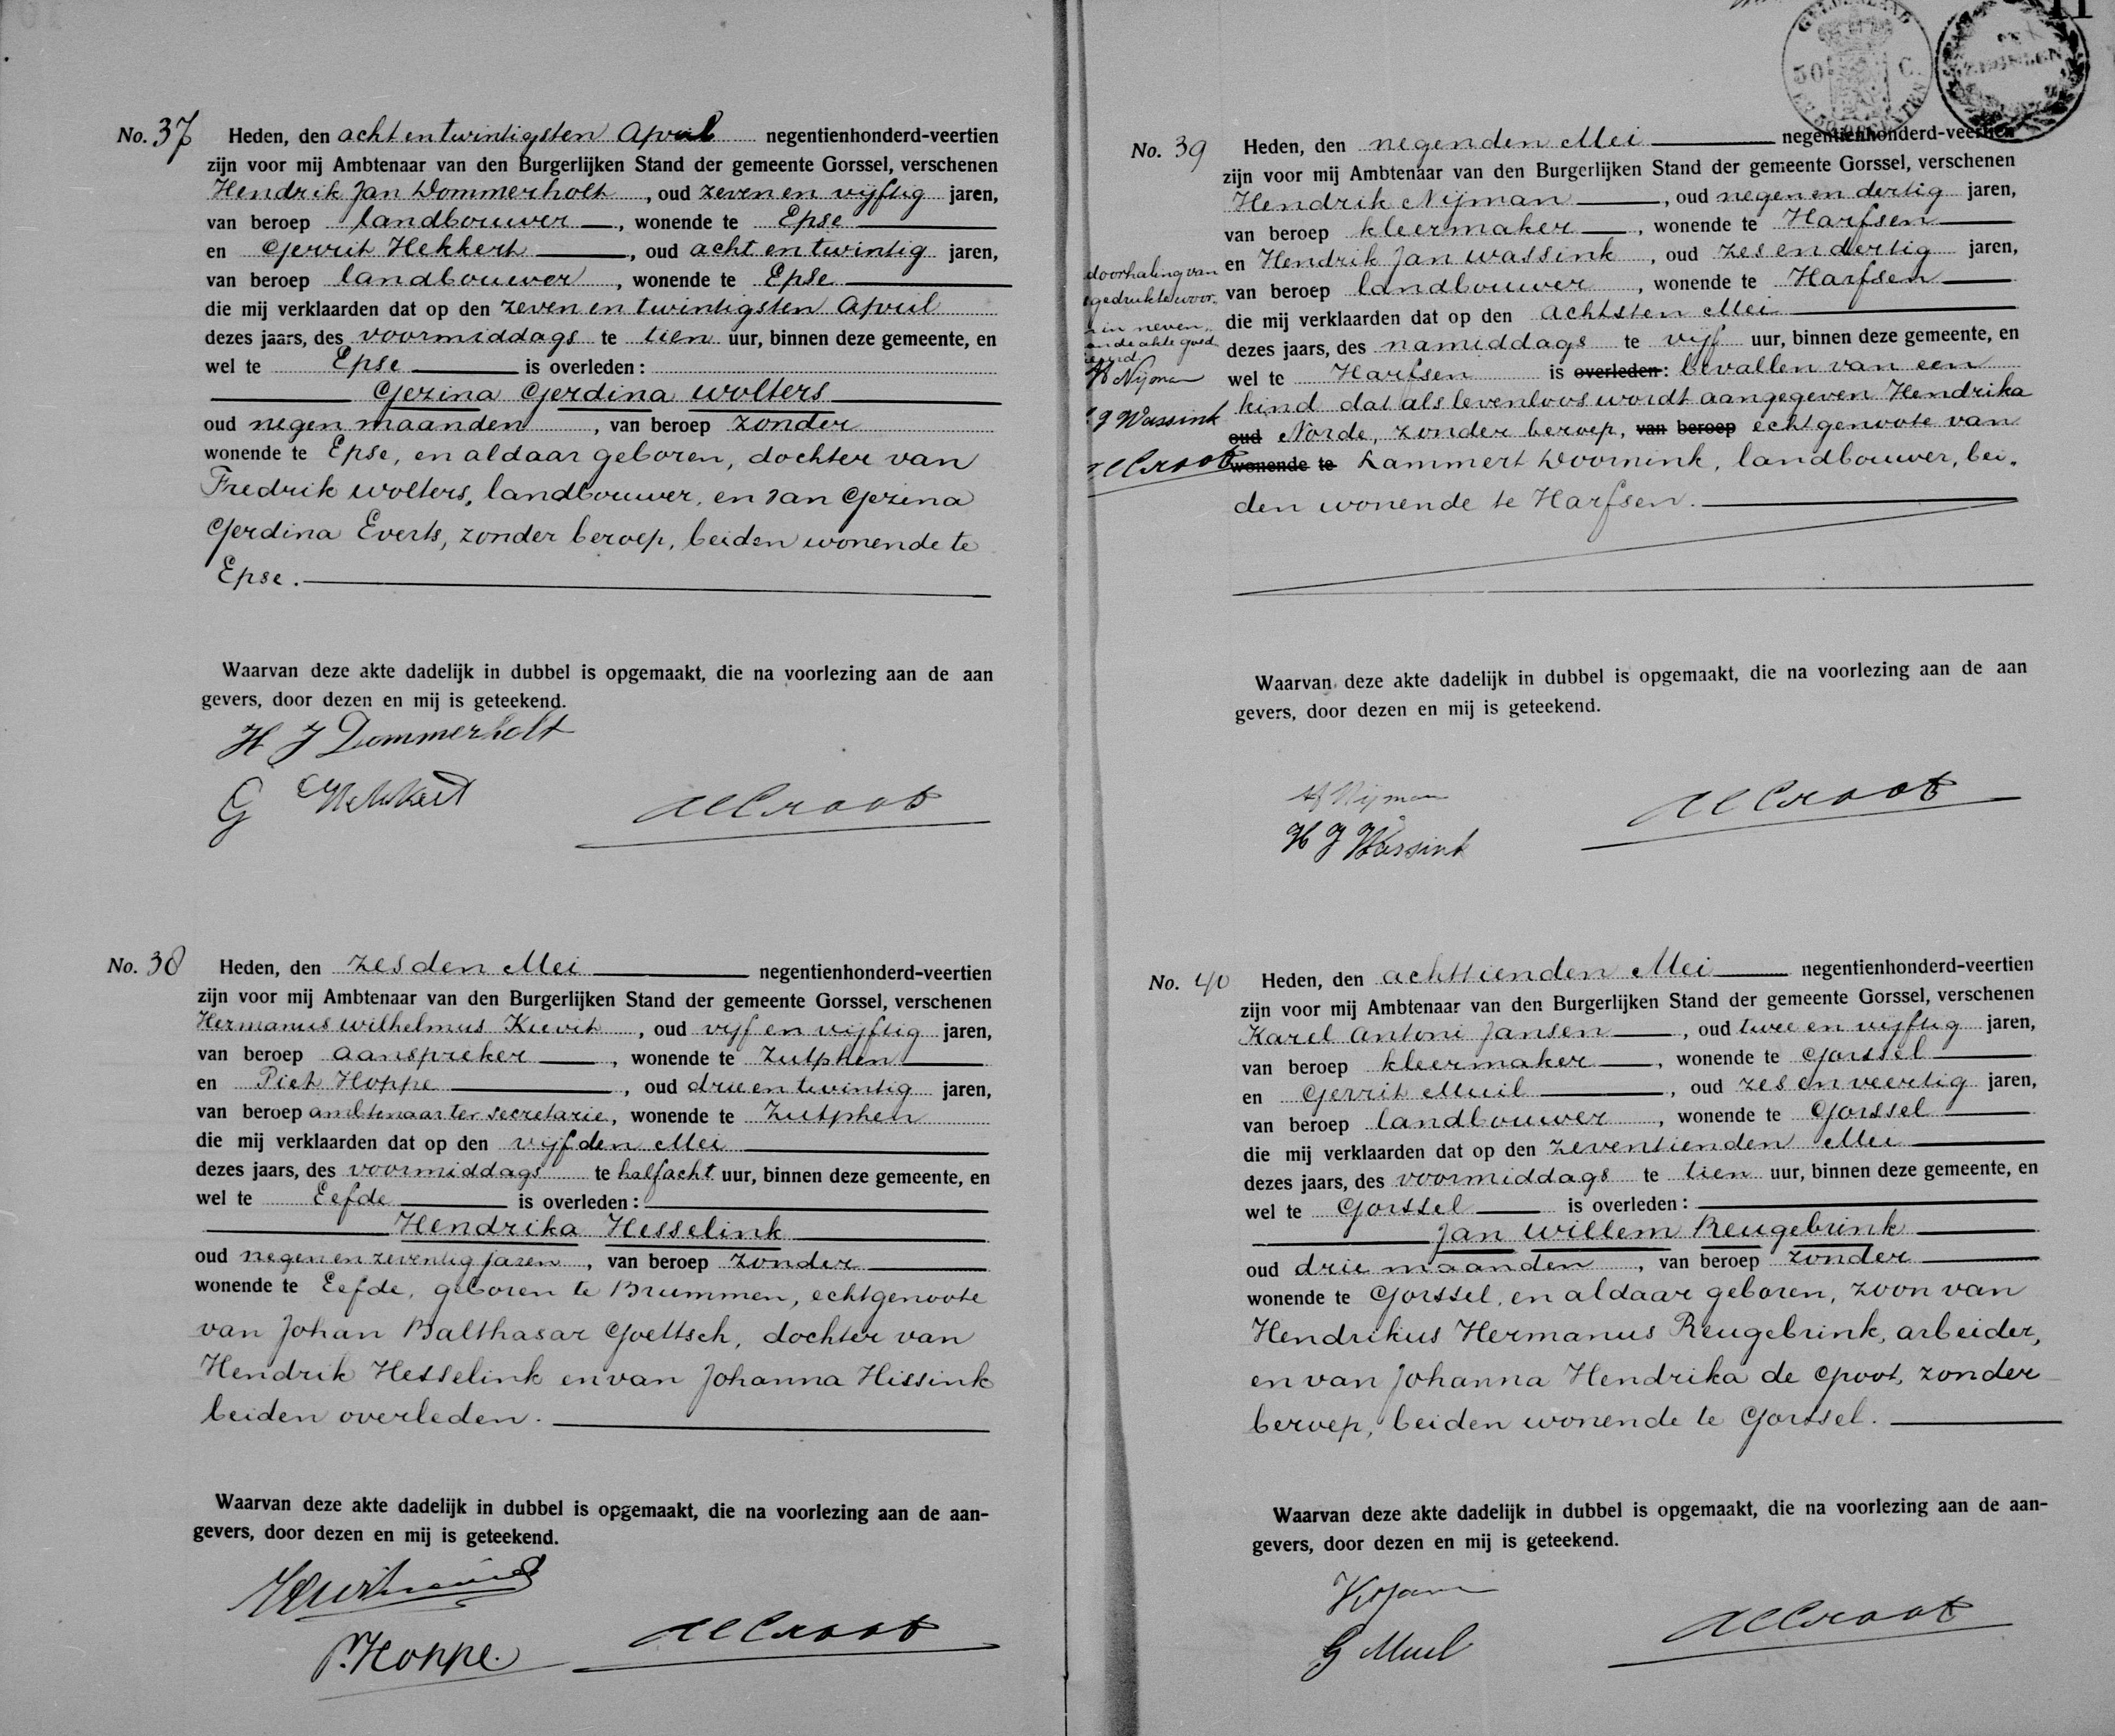 No. 37 Heden, den acht en twintigsten April negentienhonderd-veertien
zijn voor mij Ambtenaar van den Burgerlijken Stand der gemeente Gorssel, verschenen
Hendrik Jan Dommerholt, oud zeven en vijftig jaren,
van beroep landbouwer, wonende te Epse
en Gerrit Hekkert, oud acht en twintig jaren,
van beroep landbouwer, wonende te Epse
die mij verklaarden dat op den zeven en twintigsten April
dezes jaars, des voormiddags te tien uur, binnen deze gemeente, en
wel te Epse is overleden:
Gezina Gerdina Wolters
oud negen maanden, van beroep zonder
wonende te Epse, en aldaar geboren, dochter van
Fredrik Wolters, landbouwer, en van Gezina
Gerdina Everts, zonder beroep, beiden wonende te
Epse.
Waarvan deze akte dadelijk in dubbel is opgemaakt, die na voorlezing aan de aan
gevers, door dezen en mij is geteekend.
H J Dommerholt
G Hekkert
No. 38 Heden, den zesden Mei negentienhonderd-veertien
zijn voor mij Ambtenaar van den Burgerlijken Stand der gemeente Gorssel, verschenen
Hermanus Wilhelmus Kievit, oud vijf en vijftig jaren,
van beroep aanspreker, wonende te Zutphen
en Piet Hoppe, oud drie en twintig jaren,
van beroep ambtenaar ter secretarie, wonende te Zutphen
die mij verklaarden dat op den vijfden Mei
dezes jaars, des voormiddags te half acht uur, binnen deze gemeente, en
wel te Eefde is overleden:
Hendrika Hesselink
oud negen en zeventig jaren, van beroep zonder
wonende te Eefde, geboren te Brummen, echtgenoote
van Johan Balthasar Goeltsch, dochter van
Hendrik Hesselink en van Johanna Hissink
beiden overleden.
Waarvan deze akte dadelijk in dubbel is opgemaakt, die na voorlezing aan de aan-
gevers, door dezen en mij is geteekend.
P. Hoppe.
11
GELDERLAND
50 C.
No. 39 Heden, den negenden Mei negentienhonderd-veertien
zijn voor mij Ambtenaar van den Burgerlijken Stand der gemeente Gorssel, verschenen
Hendrik Nijman, oud negen en dertig jaren,
van beroep kleermaker, wonende te Harfsen
en Hendrik Jan Wassink, oud zes en dertig jaren,
van beroep landbouwer, wonende te Harfsen
die mij verklaarden dat op den achtsten Mei
dezes jaars, des namiddags te vijf uur, binnen deze gemeente, en
wel te Harfsen is overleden: bevallen van een
kind dat als levenloos wordt aangegeven Hendrika
oud Norde, zonder beroep, van beroep echtgenoote van
wonende te Lammert Woornink, landbouwer, bei„
den wonende te Harfsen.
doorhaling van
gedrukte woor„
in neven„
H Nijman
J Wassink
Waarvan deze akte dadelijk in dubbel is opgemaakt, die na voorlezing aan de aan
gevers, door dezen en mij is geteekend.
H Nijman
H J Wassink
No. 40 Heden, den achttienden Mei negentienhonderd-veertien
zijn voor mij Ambtenaar van den Burgerlijken Stand der gemeente Gorssel, verschenen
Karel Antoni Jansen, oud twee en vijftig jaren,
van beroep kleermaker, wonende te Gorssel
en Gerrit Muil, oud zes en veertig jaren,
van beroep landbouwer, wonende te Gorssel
die mij verklaarden dat op den zeventienden Mei
dezes jaars, des voormiddags te tien uur, binnen deze gemeente, en
wel te Gorssel is overleden:
Jan Willem Reugebrink
oud drie maanden, van beroep zonder
wonende te Gorssel, en aldaar geboren, zoon van
Hendrikus Hermanus Reugebrink, arbeider,
en van Johanna Hendrika de Groot, zonder
beroep, beiden wonende te Gorssel.
Waarvan deze akte dadelijk in dubbel is opgemaakt, die na voorlezing aan de aan-
gevers, door dezen en mij is geteekend.
G Muil